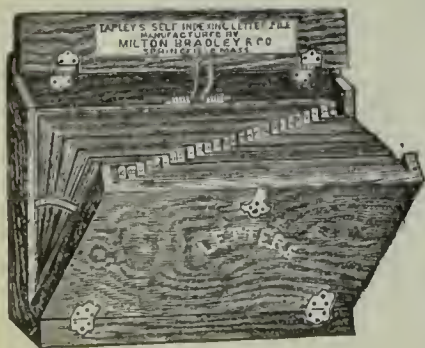 TAPLEY'S SELF INDEXING LETTER FILE
MANUFACTURED BY
MILTON BRADLEY & CO
SPRINGFIELD MASS
LETTERS